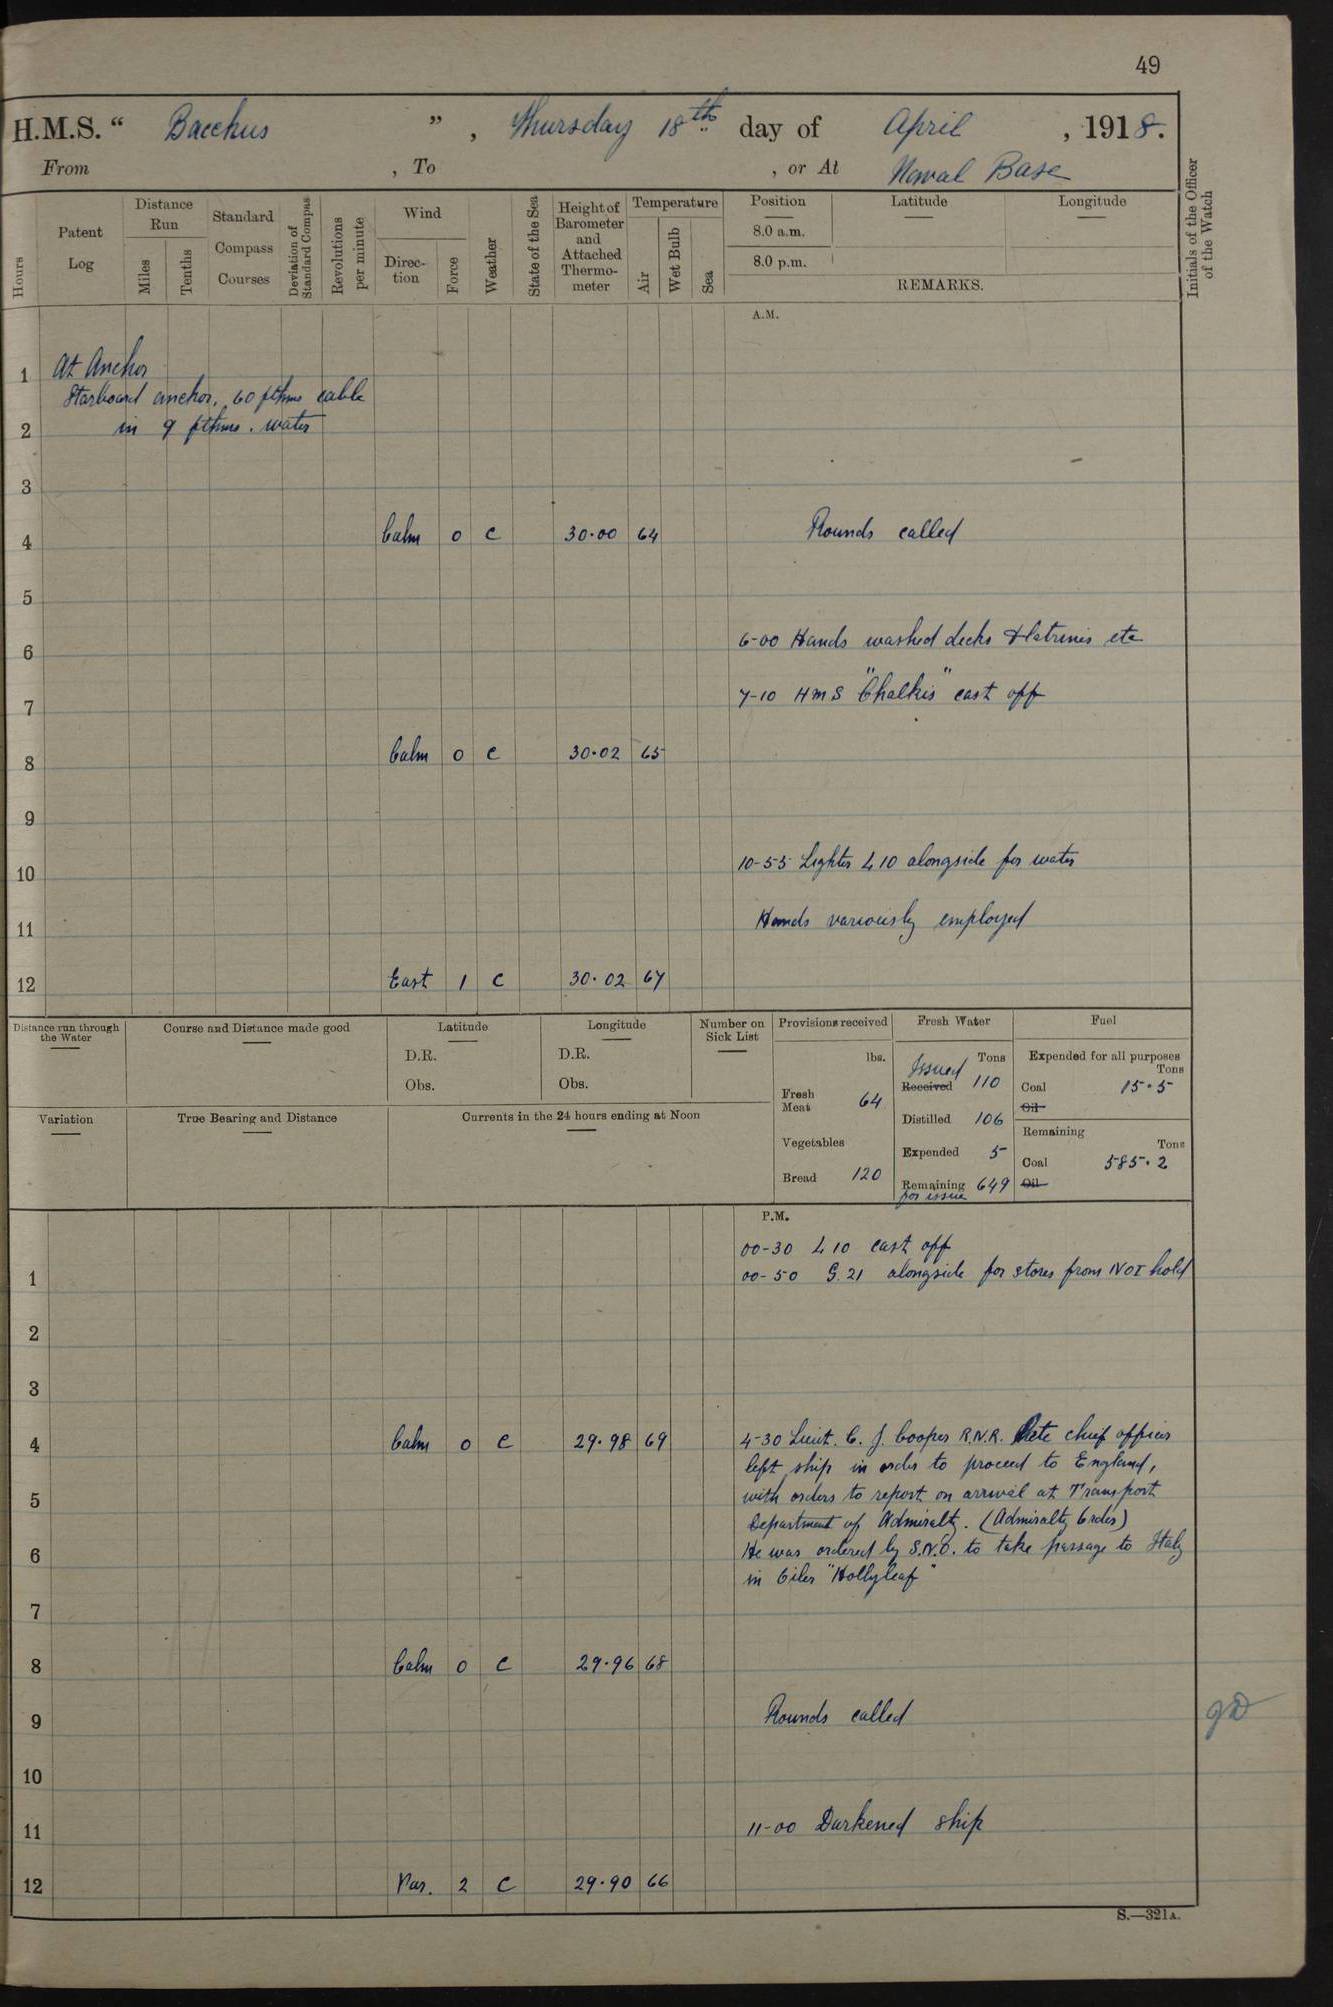 49
H.M.S. “ Bacchus ” , Thursday 18th day of April , 1918.
From , To , or At Naval Base
Hours
Patent Log
Distance Run
Miles
Tenths
Standard Compass Courses
Deviation of Standard Compass
Revolutions per minute
Wind
Direction
Force
Weather
State of the Sea
Height of Barometer and Attached Thermometer
Temperature
Air
Wet Bulb
Sea
Position
8.0 a.m.
8.0 p.m.
Latitude
Longitude
REMARKS.
Initials of the Officer of the Watch
A.M.
1 At Anchor
Starboard anchor, 60 fthms cable
2 in 9 fthms. water
3
4 Calm 0 c 30.00 64 Rounds called
5
6 6-00 Hands washed decks & latrines etc
7 7-10 H M S "Chalkis" cast off
8 Calm 0 c 30.02 65
9
10 10-55 Lighter L 10 alongside for water
11 Hands variously employed
12 East 1 c 30.02 67
Distance run through the Water
Course and Distance made good
Latitude
D.R.
Obs.
Longitude
D.R.
Obs.
Number on Sick List
Variation
True Bearing and Distance
Currents in the 24 hours ending at Noon
Provisions received
lbs.
Fresh Meat 64
Vegetables
Bread 120
Fresh Water
Tons
Issued
Received 110
Distilled 106
Expended 5
Remaining 649
for issue
Fuel
Expended for all purposes
Tons
Coal 15.5
Oil
Remaining
Tons
Coal 585.2
Oil
P.M.
00-30 L 10 cast off
1 00-50 G. 21 alongside for stores from No I hold
2
3
4 Calm 0 c 29.98 69 4-30 Lieut. C. J. Cooper R.N.R. chief officer
left ship in order to proceed to England,
5 with orders to report on arrival at Transport
Department of Admiralty. (Admiralty Order)
6 He was ordered by S.N.O. to take passage to Italy
in Oiler "Hollyleaf"
7
8 Calm 0 c 29.96 68
9 Rounds called
10
11 11-00 Darkened ship
12 Var. 2 c 29.90 66
S.—321A.